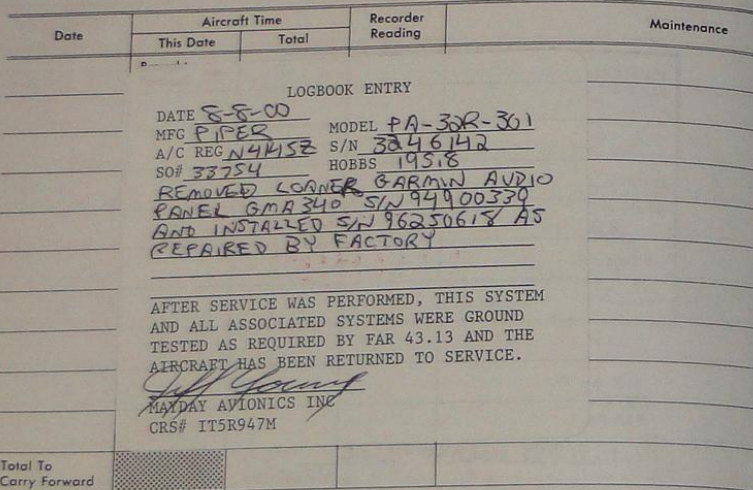 Date
Aircraft Time
Recorder Reading
Maintenance
This Date
Total
LOGBOOK ENTRY
DATE 8-8-00
MFG PIPER MODEL PA-32R-301
A/C REG N4145Z S/N 3246142
SO# 33754 HOBBS 195.8
REMOVED LOANER GARMIN AUDIO
PANEL GMA 340 S/N 94900339
AND INSTALLED S/N 96250618 AS
REPAIRED BY FACTORY
AFTER SERVICE WAS PERFORMED, THIS SYSTEM
AND ALL ASSOCIATED SYSTEMS WERE GROUND
TESTED AS REQUIRED BY FAR 43.13 AND THE
AIRCRAFT HAS BEEN RETURNED TO SERVICE.
Jeff Young
MAYDAY AVIONICS INC
CRS# IT5R947M
Total To
Carry Forward